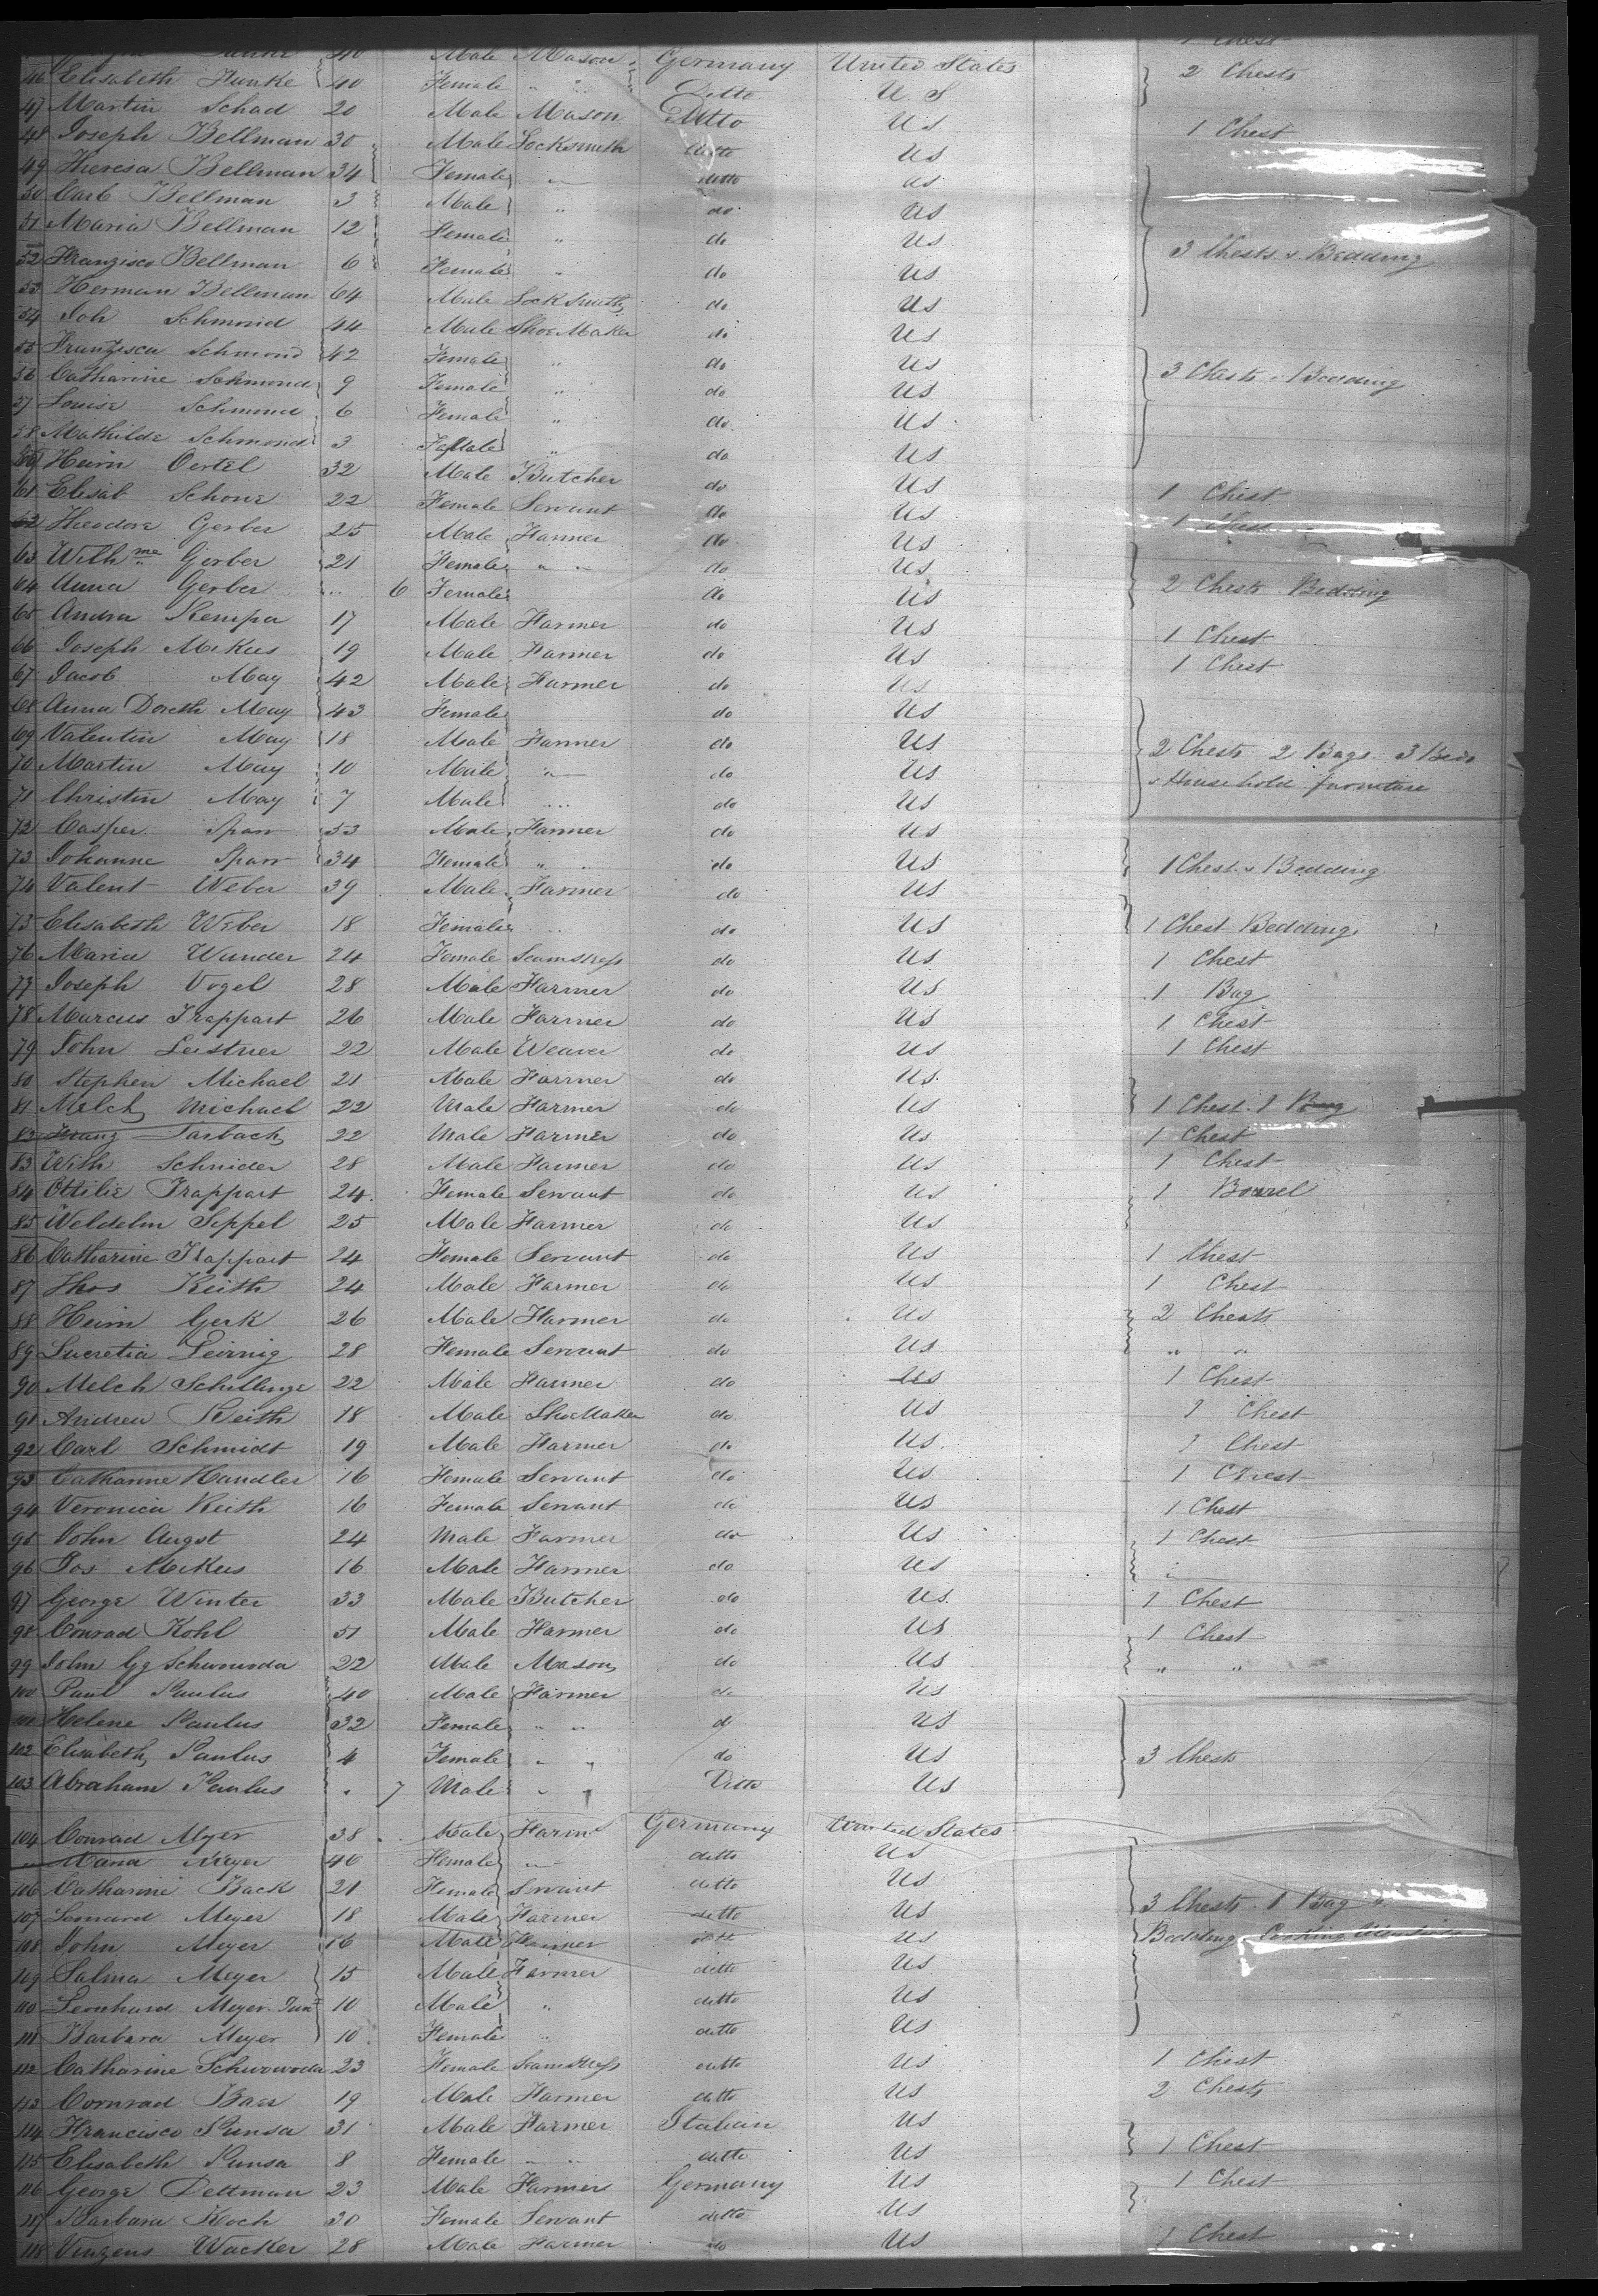 40 Male Mason Germany United States 1 Chest
46 Elisabeth Funke 40 Female " " Ditto U.S 2 Chests
47 Martin Schad 20 Male Mason Ditto US
48 Joseph Bellman 30 Male Locksmith ditto US 1 Chest
49 Theresa Bellman 34 Female " ditto US
50 Carl Bellman 3 Male " do US
51 Maria Bellman 12 Female " do US
52 Franzisca Bellman 6 Female " do US 3 Chests & Bedding
53 Herman Bellman 64 Male Lock Smith do US
54 Joh Schmond 44 Male Shoe Maker do US
55 Franzisca Schmond 42 Female " do US
56 Catharine Schmond 9 Female " do US 3 Chests & Bedding
57 Louise Schmond 6 Female " do US
58 Mathilde Schmond 3 Female " do US
60 Heirn Oertel 32 Male Butcher do US
61 Elisab Schone 22 Female Servant do US 1 Chest
62 Theodore Gerber 25 Male Farmer do US 1 Chest
63 Wilhme Gerber 21 Female " " do US
64 Anna Gerber " 6 Female do US 2 Chests Bedding
65 Andra Kempa 17 Male Farmer do US
66 Joseph Mekus 19 Male Farmer do US 1 Chest
67 Jacob May 42 Male Farmer do US 1 Chest
68 Anna Doreth May 43 Female do US
69 Valentin May 18 Male Farmer do US 2 Chests 2 Bags 3 Beds
70 Martin May 10 Male " do US & Household furniture
71 Christin May 7 Male " do US
72 Casper Sparr 53 Male Farmer do US
73 Johanne Sparr 34 Female " " do US 1 Chest & Bedding
74 Valent Weber 39 Male Farmer do US
75 Elisabeth Weber 18 Female " do US 1 Chest Bedding
76 Maria Wunder 24 Female Seamstress do US 1 Chest
77 Joseph Vogel 28 Male Farmer do US 1 Bag
78 Marcus Trappart 26 Male Farmer do US 1 Chest
79 John Leistner 22 Male Weaver do US 1 Chest
80 Stephen Michael 21 Male Farmer do US
81 Melch Michael 22 Male Farmer do US 1 Chest 1 Bag
82 Franz Sarbach 22 Male Farmer do US 1 Chest
83 Wilh Schnider 28 Male Farmer do US 1 Chest
84 Ottilie Trappart 24 Female Servant do US 1 Barrel
85 Weldelin Seppel 25 Male Farmer do US
86 Catharine Trappart 24 Female Servant do US 1 Chest
87 Thos Keith 24 Male Farmer do US 1 Chest
88 Heirn Gerk 26 Male Farmer do US 2 Chests
89 Lucretia Leirnig 28 Female Servant do US " "
90 Melch Schillinge 22 Male Farmer do US 1 Chest
91 Andrea Keith 18 Male Shoe Maker do US 1 Chest
92 Carl Schmidt 19 Male Farmer do US 1 Chest
93 Catharine Handler 16 Female Servant do US 1 Chest
94 Veronica Keith 16 Female Servant do US 1 Chest
95 John Augst 24 Male Farmer do US 1 Chest
96 Jos Mekus 16 Male Farmer do US "
97 George Winter 33 Male Butcher do US 1 Chest
98 Conrad Kohl 51 Male Farmer do US 1 Chest
99 John Gg Schwowoda 22 Male Mason do US " "
100 Paul Paulus 40 Male Farmer do US
101 Helene Paulus 32 Female " " do US
102 Elisabeth Paulus 4 Female " " do US 3 Chests
103 Abraham Paulus " 7 Male " " Ditto US
104 Conrad Myer 38 Male Farm Germany United States
Maria Meyer 46 Female " ditto US
106 Catharine Back 21 Female Servant ditto US
107 Leonard Meyer 18 Male Farmer ditto US 3 Chests 1 Bag
108 John Meyer 16 Male Farmer ditto US Bedding Cooking Utensils
109 Salma Meyer 15 Male Farmer ditto US
110 Leonhard Meyer Junr 10 Male " ditto US
111 Barbara Meyer 10 Female " ditto US
112 Catharine Schwowoda 23 Female Seamstress ditto US 1 Chest
113 Cornrad Baas 19 Male Farmer ditto US 2 Chests
114 Francisco Punsa 31 Male Farmer Italian US
115 Elisabeth Punsa 8 Female " " ditto US 1 Chest
116 George Dettman 23 Male Farmer Germany US 1 Chest
117 Barbara Koch 30 Female Servant ditto US
118 Vinzens Wacker 28 Male Farmer do US 1 Chest